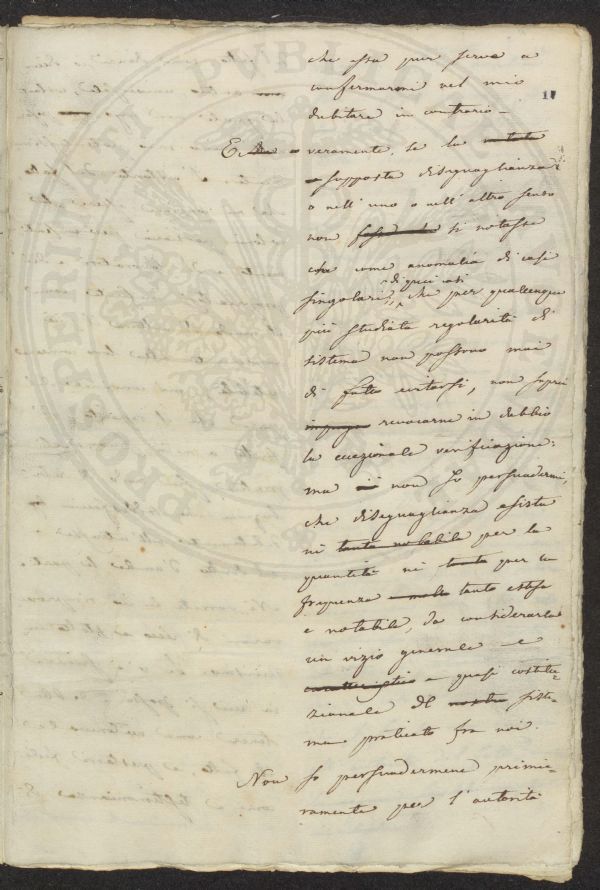 17
che essa pur serva a
confermarmi nel mio
dubitare in contrario.
E veramente, se la
supposta diseguaglianza
o nell' uno o nell' altro senso
non si notasse
che come anomalia di casi
singolari, di quei casi che per qualunque
più studiata regolarità di
sistema non possono mai
di fatto evitarsi, non saprei
revocarne in dubbio
la eccezionale verificazione:
ma non so persuadermi,
che diseguaglianza esista
nè tanto notabile per la
quantità nè tanto per la
frequenza tanto estesa
e notabile, da considerarla
un vizio generale e
caratteristico e quasi costitu-
zionale del nostro siste-
ma praticato fra noi.
Non so persuadermene primie-
ramente per l' autorità